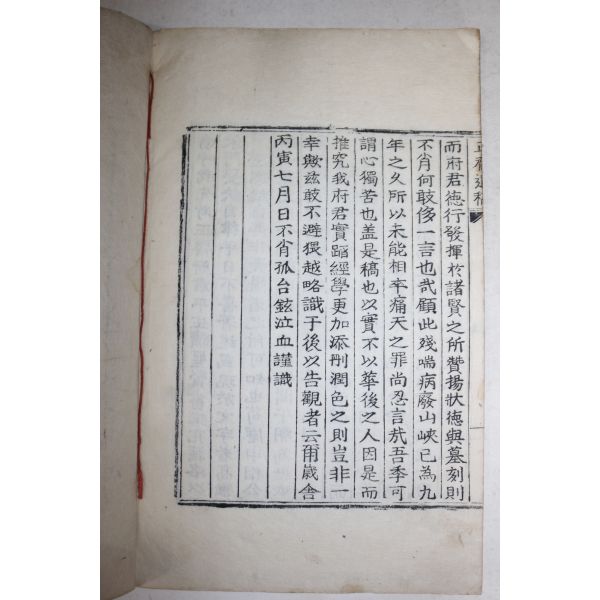 而府君德行發揮於諸賢之所贊揚狀德與墓刻則
不肖何敢侈一言也哉顧此殘喘病廢山峽已為九
年之久所以未能相卒痛天之罪尚忍言哉吾季可
謂心獨苦也盖是稿也以實不以華後之人因是而
推究我府君實蹈經學更加添刪潤色之則豈非一
幸歟玆敢不避猥越略識于後以告觀者云甭歲舍
丙寅七月日不肖孤台鉉泣血謹識